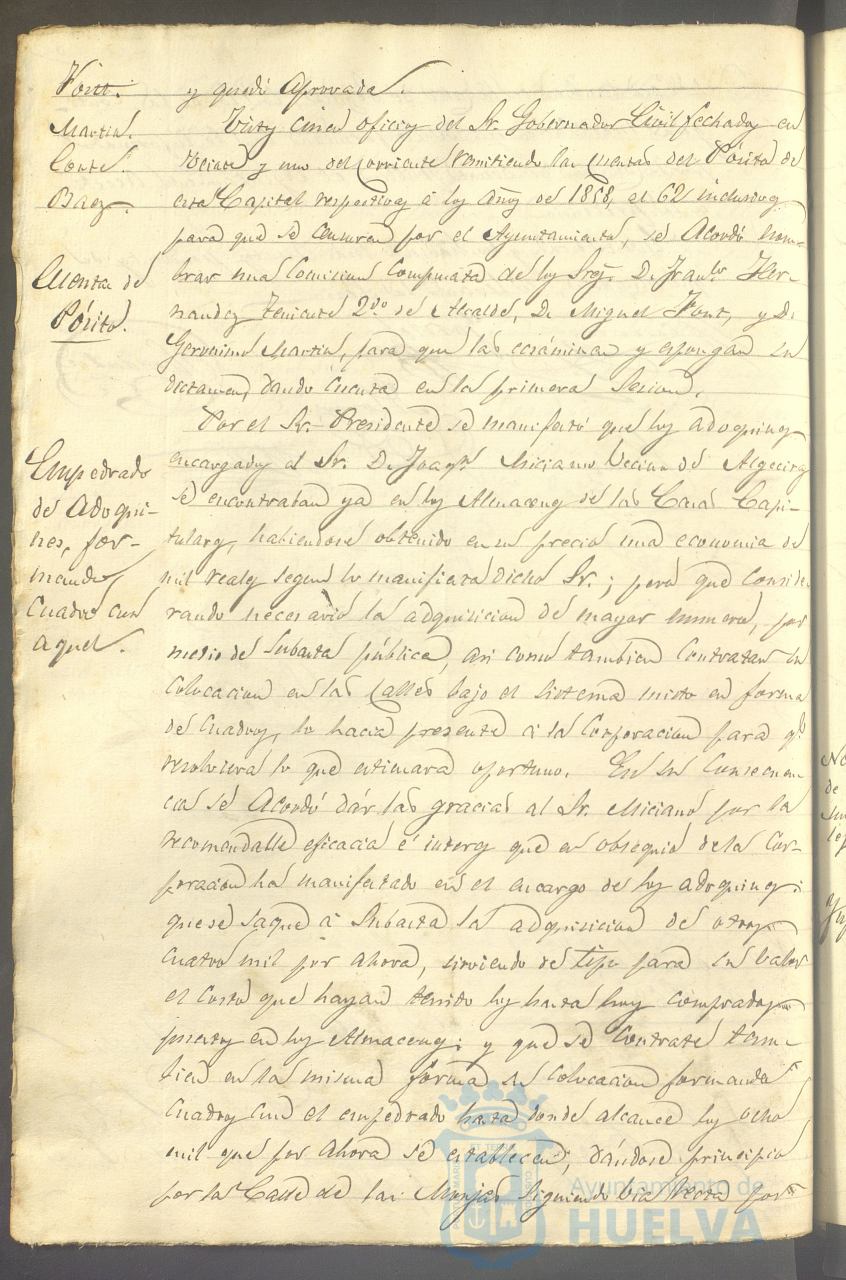 Font.
Martin.
Conte.
Baez.
Cuenta del
Pósito.
Empedrado
de Adoqui-
nes, for-
mando
Cuadro con
aquel.
y quedó Aprovada.
Vistos cinco oficios del Sr. Gobernador Civil fechados en
Veinte y uno del corriente remitiendo las cuentas del Pósito de
esta Capital respectivas á los años de 1858, al 62 inclusives
para que se censuren por el Ayuntamiento, se Acordó nom-
brar una Comision Compuesta de los Sres. D. Franco. Her-
nandez Teniente 2do. de Alcalde, D. Miguel Font, y D.
Geronimo Martin, para que las ecsaminen y espongan su
dictamen, dando cuenta en la primera Sesion.
Por el Sr. Presidente se manifestó que los adoquines
encargados al Sr. D. Joaqn. Miciano Vecino de Algeciras
se encontraban ya en los Almacenes de las Casas Capi-
tulares, habiendose obtenido en su precio una economia de
mil reales segun lo manifiesta dicho Sr.; pero que conside-
rando necesario la adquisicion de mayor numero, por
medio de Subasta pública, asi como tambien Contratar su
Colocacion en las Calles bajo el sistema misto en forma
de Cuadros, lo hacia presente á la Corporacion para qe.
resolviera lo que estimara oportuno. En su Consecuen-
cia se Acordó dár las gracias al Sr. Miciano por la
recomendable eficacia é interes que en obsequio de la Cor-
poracion ha manifestado en el encargo de los adoquines:
que se saque á Subasta la adquisicion de otros
Cuatro mil por ahora, sirviendo de tipo para su valor
el Costo que hayan tenido los hasta hoy comprados
puestos en los Almacenes; y que se Contrate tam-
bien en la misma forma su colocacion formando
Cuadros con el empedrado hasta donde alcancen los ocho
mil que por ahora se establecen, dándose principio
por la Calle de las Monjas siguiendo via recta por
Ayuntamiento de
HUELVA